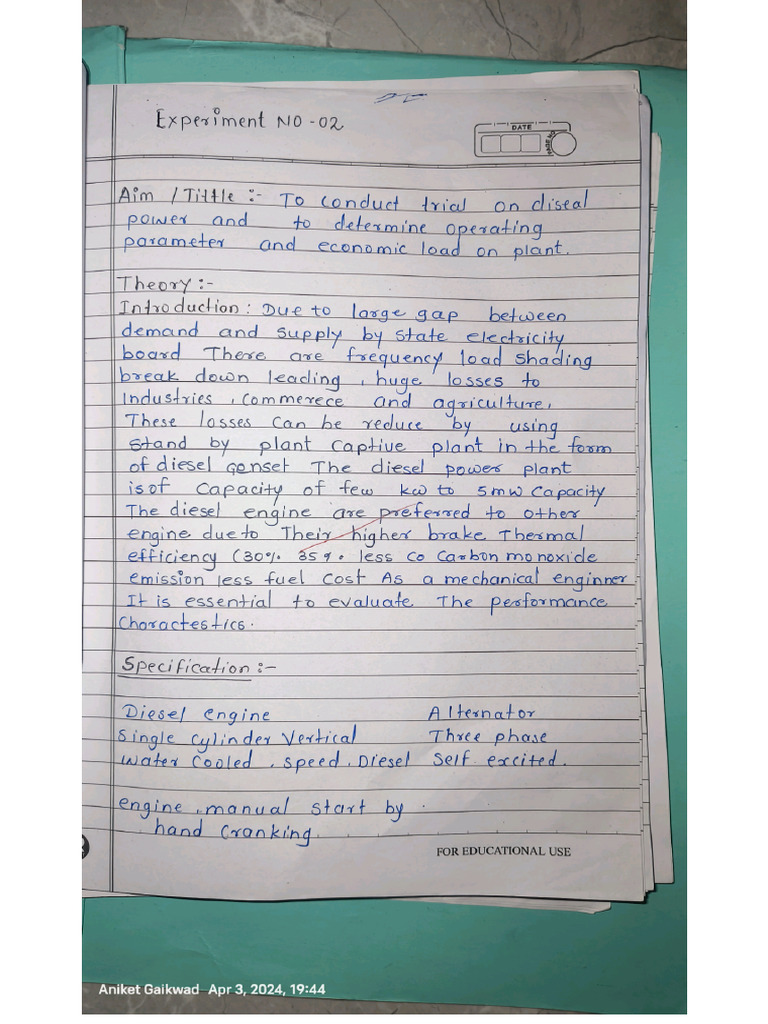 Experiment NO - 02
DATE
PAGE NO
Aim / Tittle :- To conduct trial on diseal
power and to determine operating
parameter and economic load on plant.
Theory :-
Introduction : Due to large gap between
demand and supply by state electricity
board There are frequency load shading
break down leading , huge losses to
Industries , Commerece and agriculture,
These losses can be reduce by using
stand by plant captive plant in the form
of diesel genset The diesel power plant
is of capacity of few kw to 5mw Capacity
The diesel engine are preferred to other
engine due to Their higher brake Thermal
efficiency (30% 35%. less co Carbon monoxide
emission less fuel cost As a mechanical enginner
It is essential to evaluate The performance
Charactestics.
Specification :-
Diesel engine Alternator
Single cylinder Vertical Three phase
Water cooled , speed , Diesel Self excited.
engine , manual start by
hand cranking
FOR EDUCATIONAL USE
Aniket Gaikwad Apr 3, 2024, 19:44